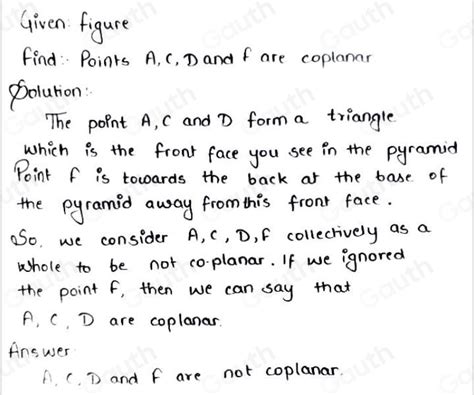 Given: figure
find:- Points A, C, D and f are coplanar
Solution:-
The point A, C and D form a triangle
which is the front face you see in the pyramid
Point f is towards the back at the base of
the pyramid away from this front face.
So, we consider A, C, D, F collectively as a
whole to be not co-planar. If we ignored
the point F, then we can say that
A, C, D are coplanar.
Answer
A, C, D and F are not coplanar.